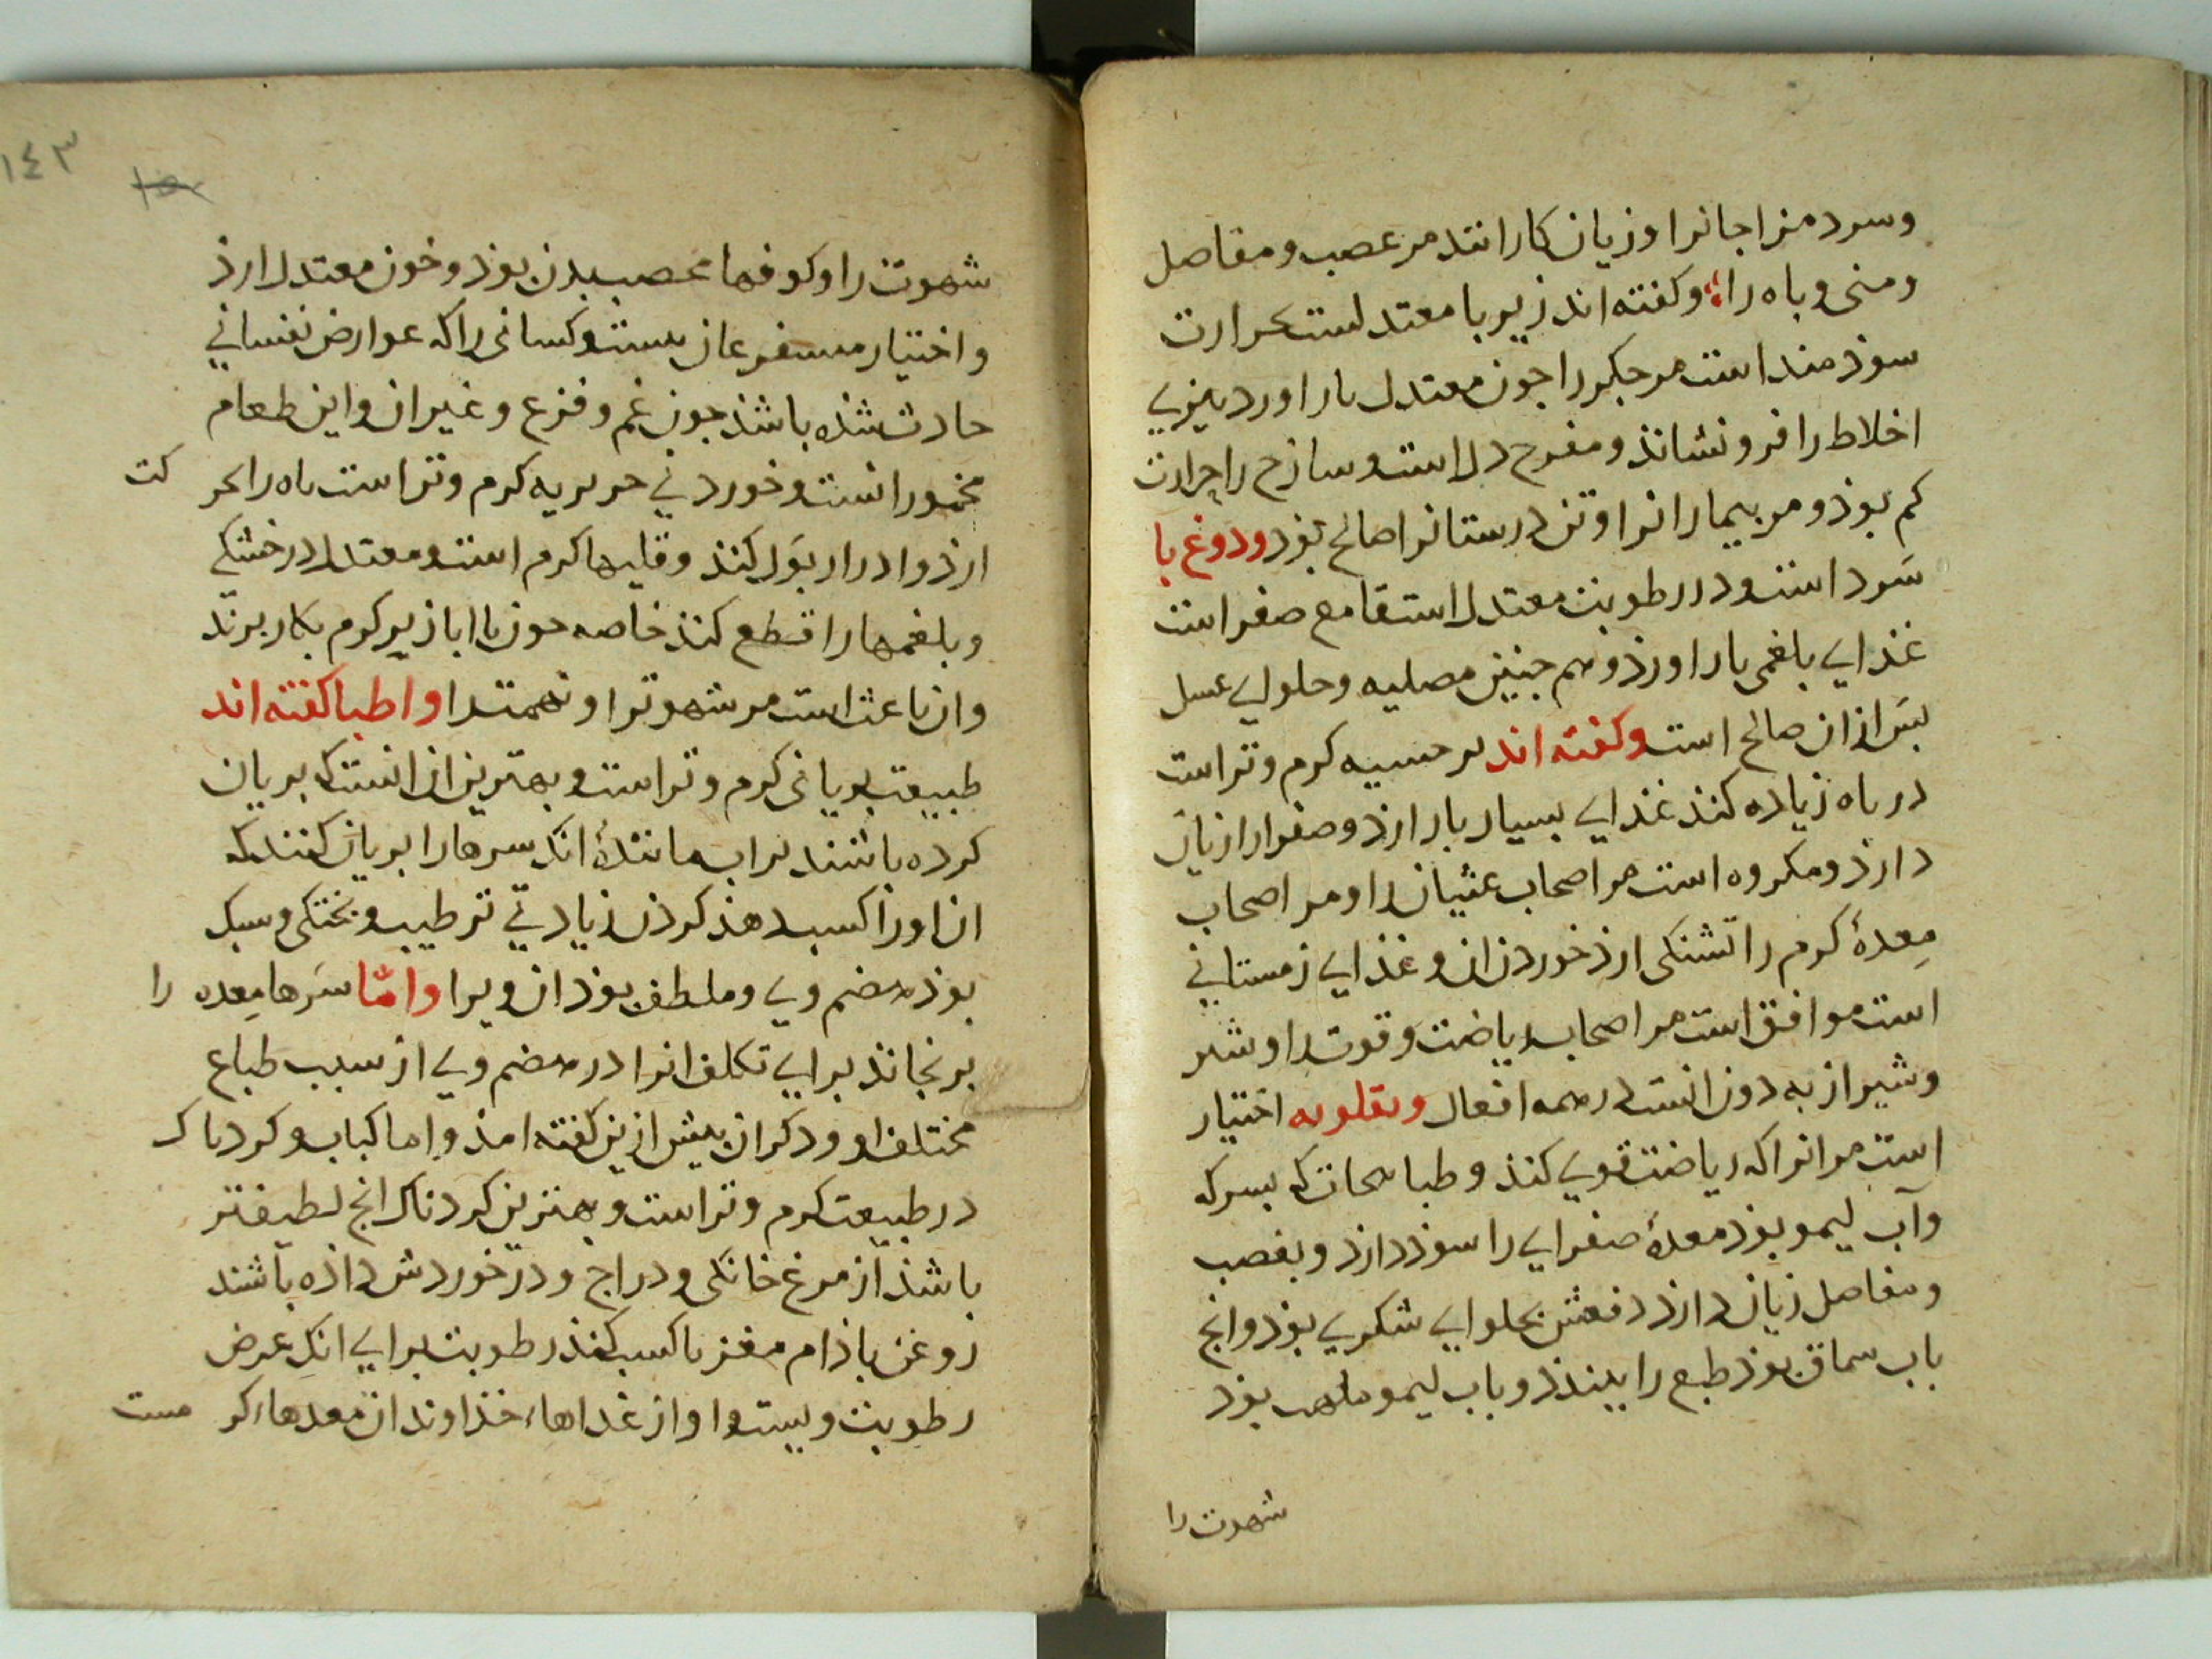 وسرد مزاجانرا وزیان کارانند مر عصب ومفاصل
ومنی وباه را وکفته اند زیر با معتدلست بحرارت
سوذ منداست مر جکر را جون معتدل بار اورد تیزیی
اخلاط را فرو نشاند ومفرح دل است وسازج را حرارت
کم بوذ ومر بیمارانرا وتن درستانرا صالح بوذ ودوغ با
سرد است ودر رطوبت معتدل است قامع صفراست
غذایی بلغمی بار اورذ وهم جنین مصلیه وحلوایی عسل
بس ازان صالح است وکفته اند کرم وتراست
در باه زیاده کند غذایی بسیار بار ارذ وصفرا را زیان
دارذ ومکروه است مر اصحاب غثیان را ومر اصحاب
معدۀ کرم را تشنکی ارذ خوردن ان وغذایی زمستانی
است موافق است مر اصحاب ریاضت وقوت را وشیر
وشیراز به دون انست در همه افعال وبقلویه اختیار
است مر انرا که ریاضت قویی کند وطباهجات که بسرکه
وآب لیمو بوذ معدۀ صفرایی را سوذ دارذ وبعصب
ومفاصل زیان دارذ دفعش بحلوایی شکریی بوذ وانج
باب سماق بوذ طبع را ببندذ وباب لیمو ملهب بوذ
شهوت را
١٤٣
شهوت را وکوفها عصب بدن بوذ وخون معتدل ارذ
واختیار مستفرغان هست وکسانی را که عوارض نفسانی
حادث شذه باشذ جون غم وفزع وغیران واین طعام
مخمورانست وخوردنی حریریه کرم وتراست باه را حرکت
ارذ وادرار بول کند وقلیها کرم است ومعتدل در خشکی
وبلغمها را قطع کند خاصه جون با ابازیر کرم بکار برند
وان باعث است مر شهوترا ونهمت را واطبا کفته اند
طبیعت بریانی کرم وتراست وبهترین ان انست که بریان
کرده باشند براب مانندۀ انک سرها را بریان کنند که
ان اورا کسب دهذ کردن زیادتی ترطیب وبختکی وسبک
بوذ هضم ویی وملطف بوذ ان ویرا واما سرها معده را
برنجاند برایی تکلف انرا در هضم ویی از سبب طباع
مختلف او وذکر ان بیش ازین کفته امذ واما کباب وکردناک
در طبیعت کرم وتراست وبهترین کردناک انج لطیفتر
باشذ از مرغ خانکی ودراج ودر خوردش داذه باشند
روغن باذام مغز تا کسب کند رطوبت برایی انک عرض
رطوبت ویبست را واز غذاها خذاوندان معدهاء کر مست